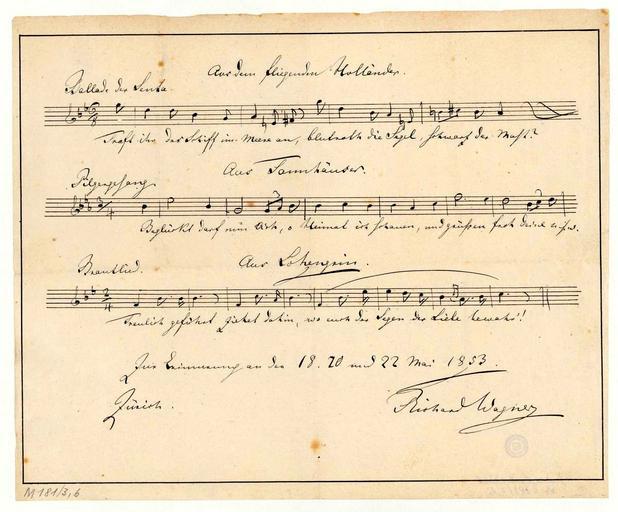 Aus dem fliegenden Holländer.
Ballade der Senta.
6
8
Traft ihr das Schiff im Meere an, blutroth die Segel, schwarz der Mast?
Aus Tannhäuser.
Pilgergesang
3
4
Beglückt darf nun dich, o Heimat ich schauen, und grüssen froh deine u.s.w.
Aus Lohengrin.
Brautlied.
2
4
Treulich geführt ziehet dahin, wo euch der Segen der Liebe bewahr'!
Zur Erinnerung an den 18. 20 und 22 Mai 1853.
Zürich.
Richard Wagner
M 181/3,6